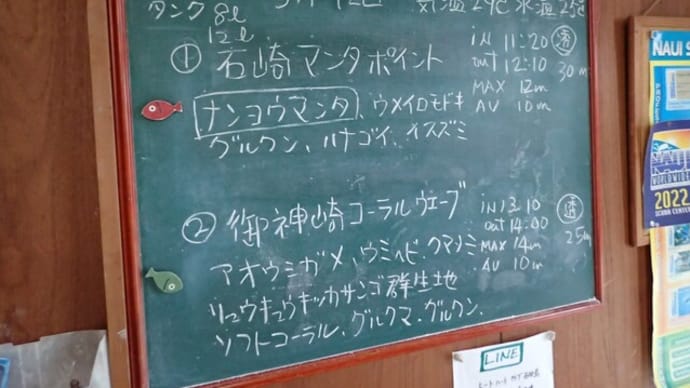 タンク 8ℓ
12ℓ
気温29℃ 水温25℃
① 石崎マンタポイント
in 11:20
out 12:10
MAX 12m
AV 10m
透
30m
ナンヨウマンタ、ウメイロモドキ
グルクン、ハナゴイ、イスズミ
② 御神崎コーラルウェーブ
in 13:10
out 14:00
MAX 14m
AV 10m
透
25m
アオウミガメ、ウミヘビ、クマノミ
リュウキュウキッカサンゴ群生地
ソフトコーラル、グルクマ、グルクン、
NAUI
WORLDWIDE
2022
LINE